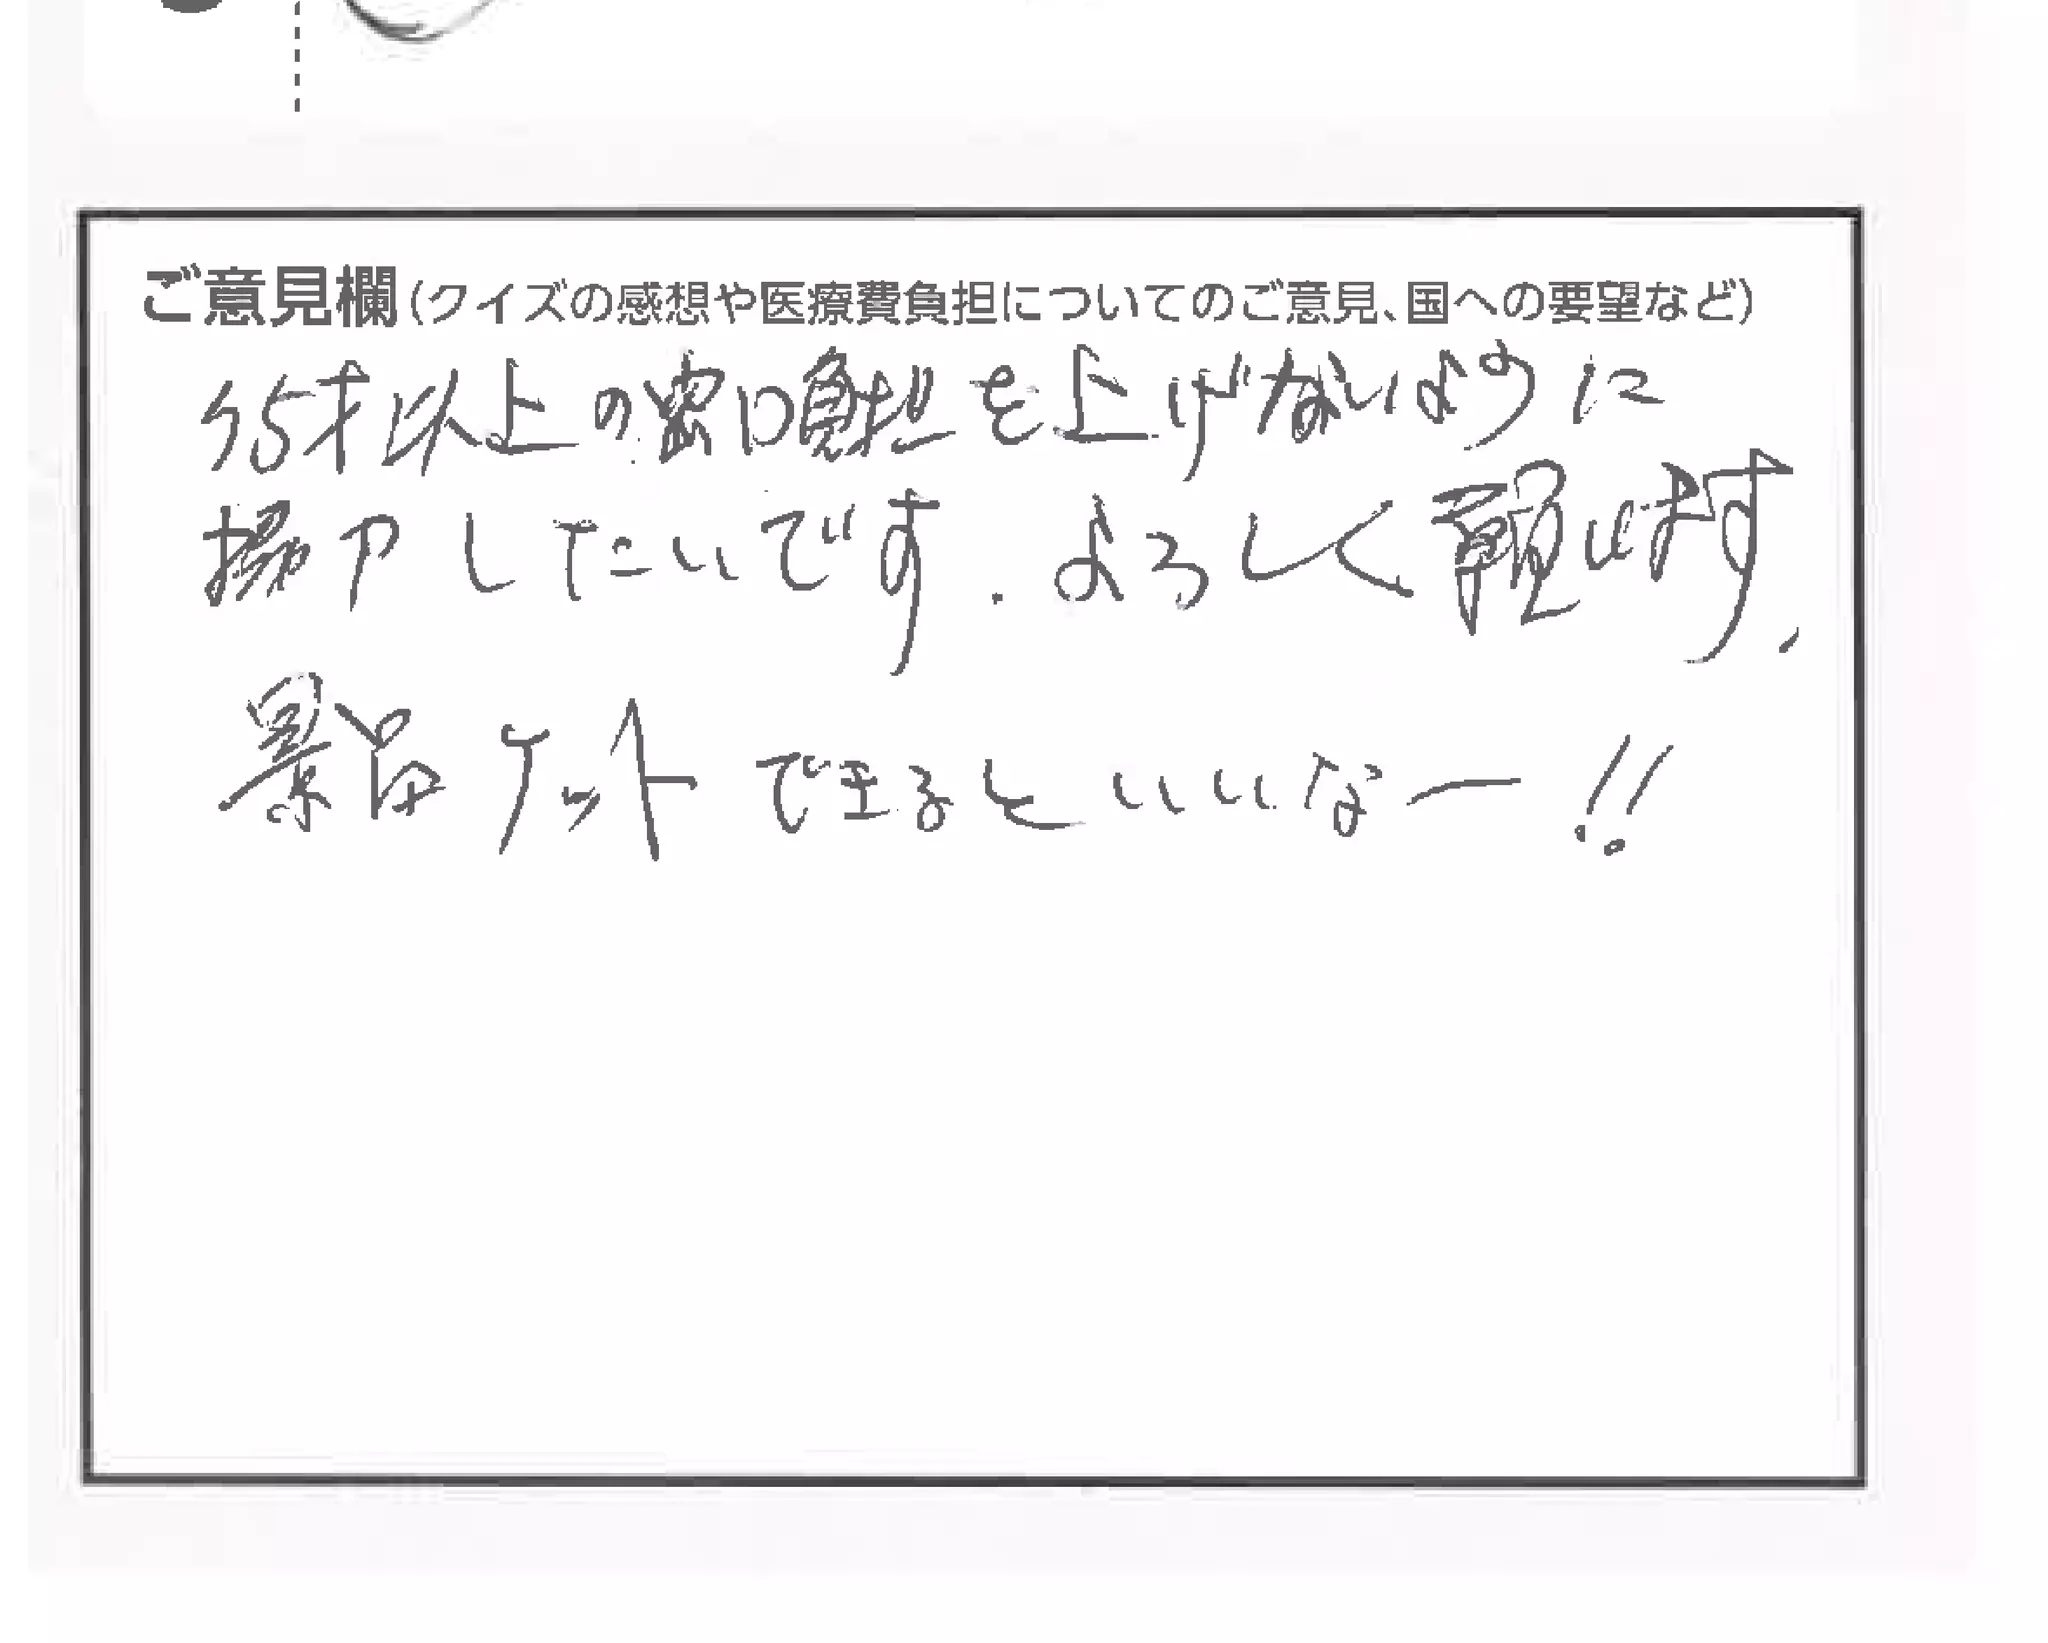 ご意見欄(クイズの感想や医療費負担についてのご意見、国への要望など)
75才以上の窓口負担を上げないように
したいです.よろしく願います.
景品ゲットできるといいなー!!